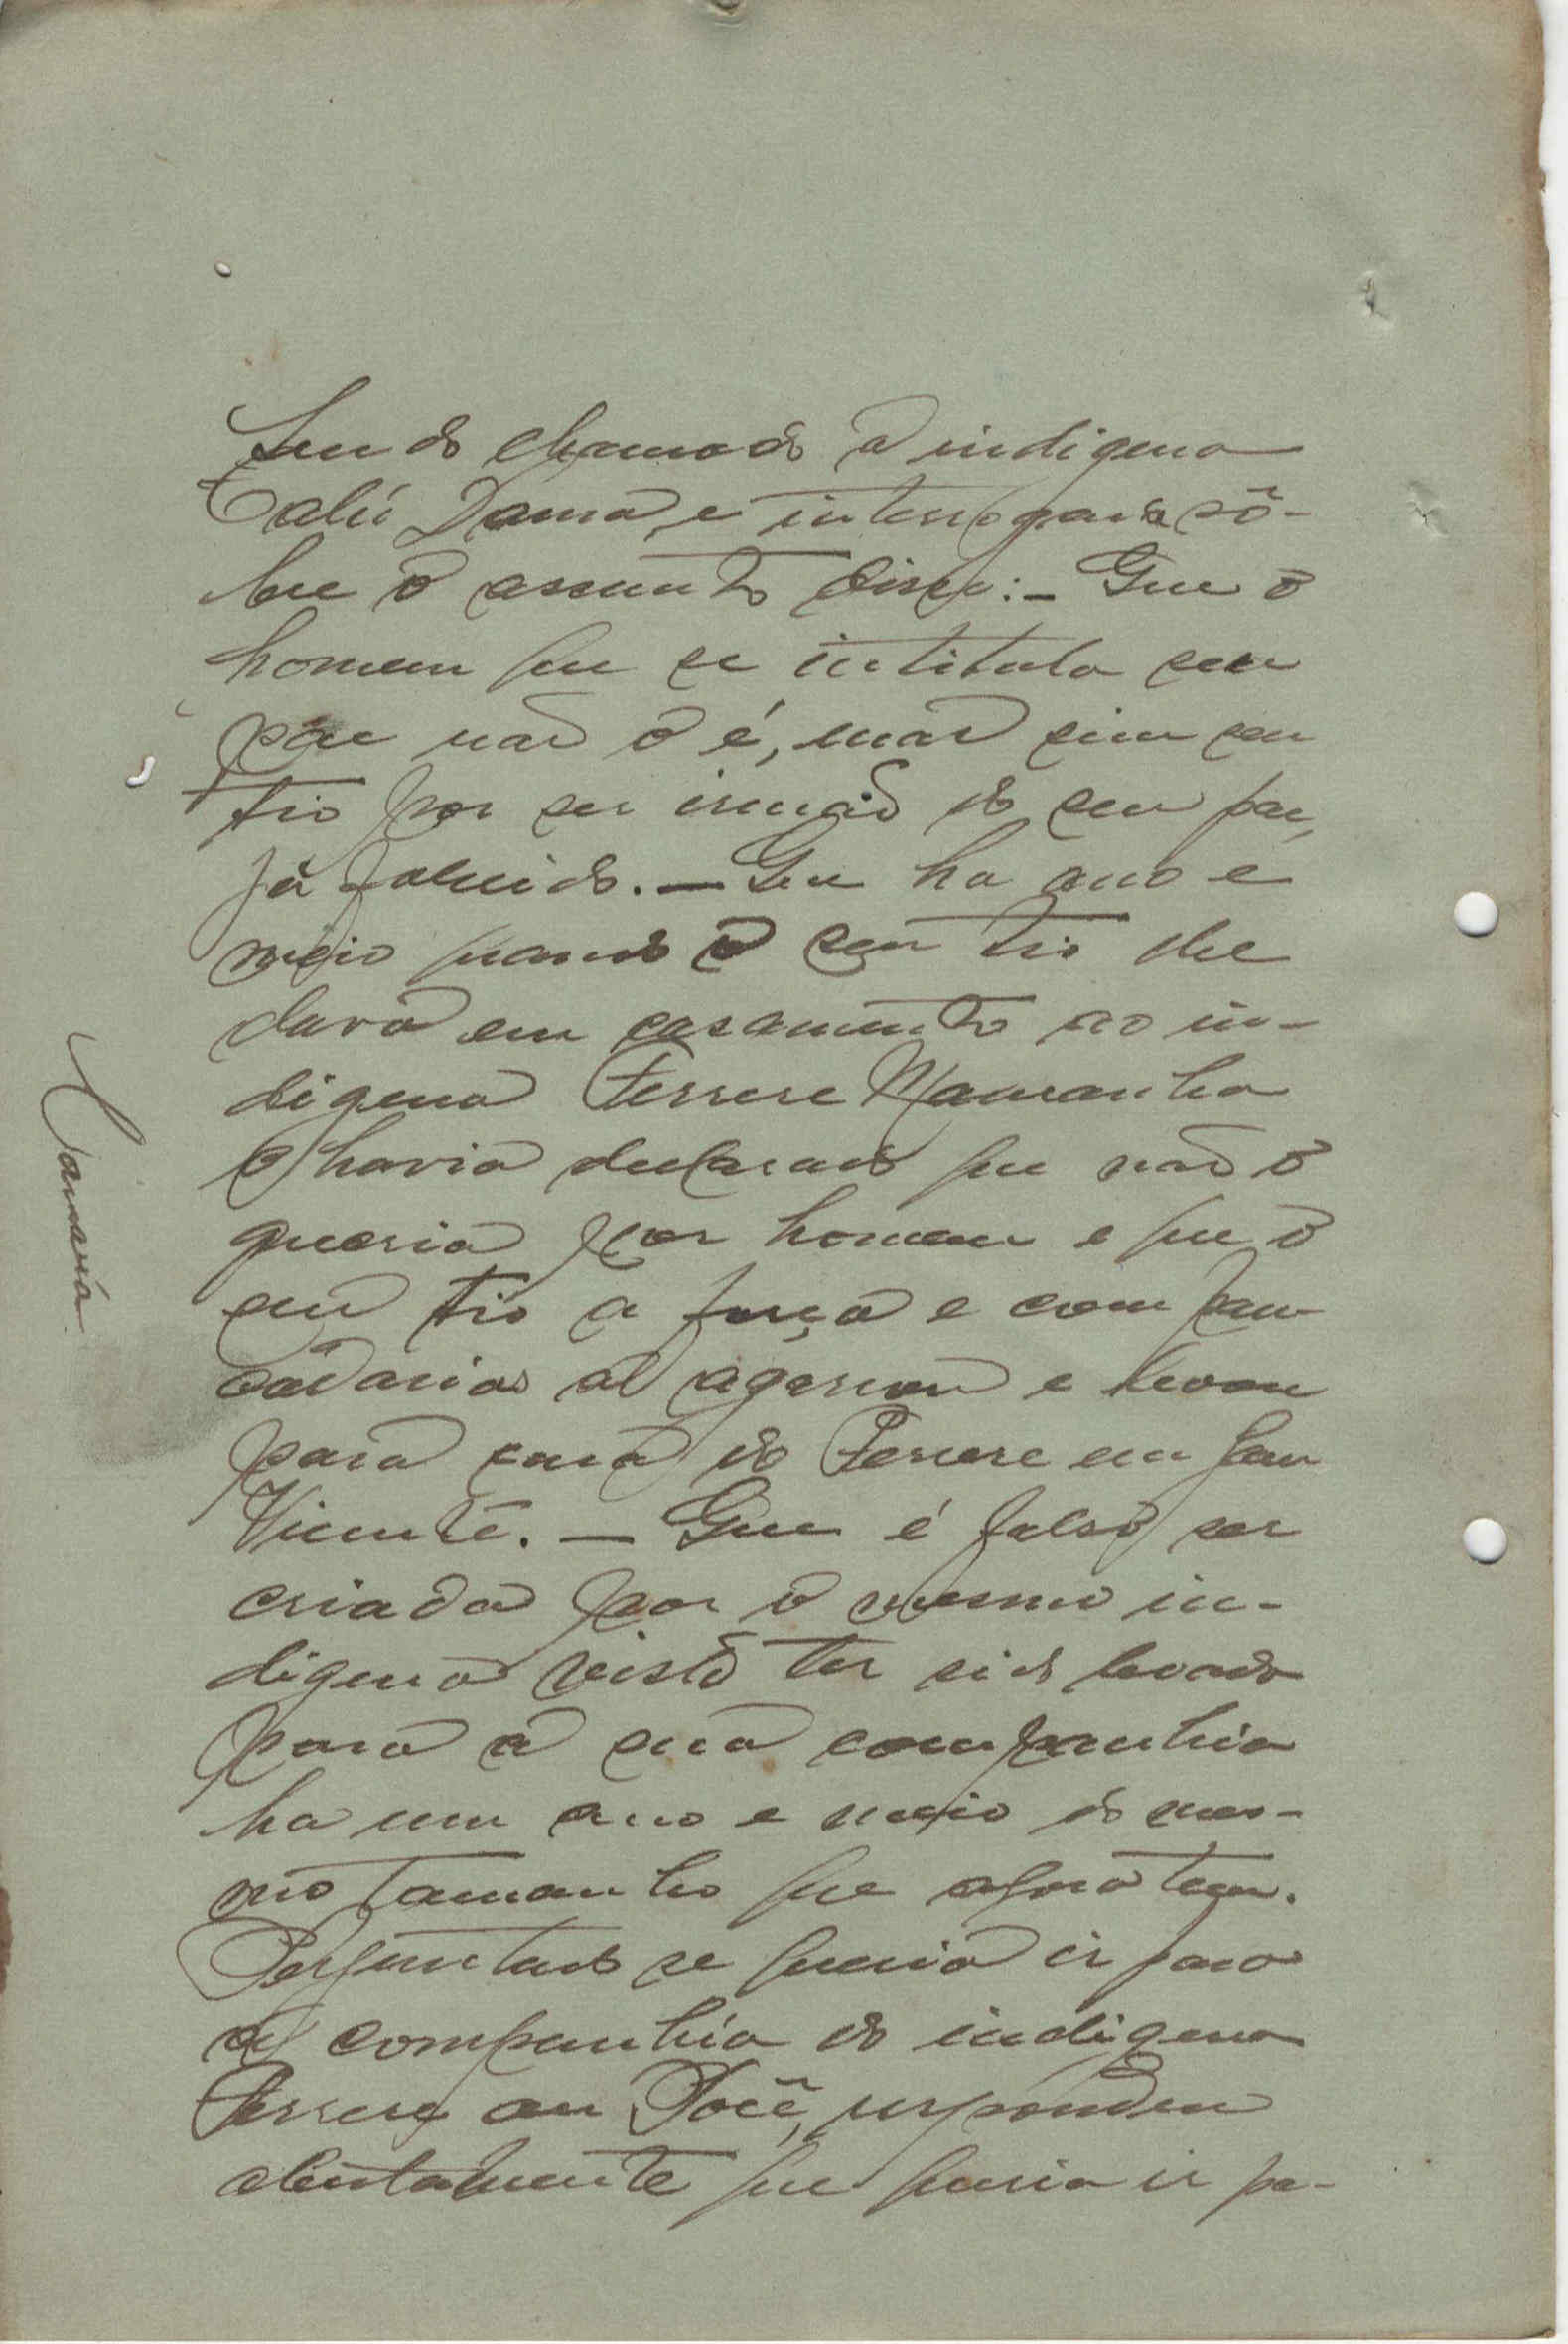 Sendo chamado a indigena
Calú Dama, e interrogada sô-
bre o assunto disse: - Que o
homem que se intitula seu
pae não o é, mas sim seu
tio por ser irmão do seu pae,
já falecido. - Que ha ano e
meio quando o seu tio lhe
dava em casamento ao in-
digena Ferrere Mamanha
o havia declarado que não o
queria por homem e que o
seu tio a força e com pan-
cadarias a agarrou e levou
para casa do Ferrere em San
Vicente. - Que é falso ser
criada por o mesmo in-
digena visto ter sido levada
para a sua companhia
ha um ano e meio do mes-
mo tamanho que agora tem.
Perguntado se queria ir para
a companhia do indigena
Ferrere ou, respondeu
que queria ir pa-